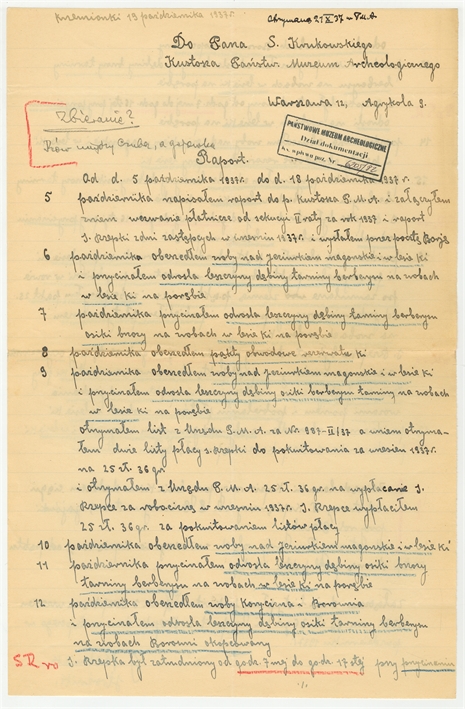 Krzemionki 19 października 1937r.
Otrzymano 21 X 37
Do Pana S. Krukowskiego
Kustosza Państw. Muzeum Archeologicznego
Warszawa 12, Agrykola 9.
Zbieranie?
między
PAŃSTWOWE MUZEUM ARCHEOLOGICZNE
Dział dokumentacji
Raport.
Od d. 5 października 1937r. do d. 18 października 1937r.
5 października napisałem raport do p. Kustosza P.M.A. i załączyłem
wezwanie płatnicze od sekucji II raty za rok 1937 i raport
J. Rzepki z dni zastępczych w wrześniu 1937r. i wysłałem przez pocztę
6 października obszedłem zroby nad Jeziorkiem magońskie i w lesie Ki
i przycinałem odrosla leszczyny dębiny tarniny berberysu na zrobach
w lesie Ki na porębie
7 października przycinałem odrosla leszczyny dębiny tarniny berberysu
osiki brzozy na zrobach w lesie Ki na porębie
8 października obszedłem pakty obwodowe rezerwatu Ki
9 października obszedłem zroby nad Jeziorkiem magońskie i w lesie Ki
i przycinałem odrosla leszczyny dębiny osiki berberysu tarniny na zrobach
w lesie Ki na porębie
otrzymałem list z Urzędu P.M.A. za No 987-II/37 a w niem otrzyma-
łem dwie listy płacy J. Rzepki do pokwitowania za wrzesień 1937r.
na 25 zł. 36 gr.
i otrzymałem z Urzędu P.M.A. 25 zł. 36 gr. na wypłacanie J.
Rzepce za robociznę w wrześniu 1937r. J. Rzepce wypłaciłem
25 zł. 36 gr. za pokwitowaniem listów płacy
10 października obszedłem zroby nad Jeziorkiem magońskie i w lesie Ki
11 października przycinałem odrosla leszczyny dębiny osiki brzozy
tarniny berberysu na zrobach w lesie Ki na porębie
12 października obszedłem zroby Korycizna i Borownia
i przycinałem odrosla leszczyny dębiny osiki tarniny berberysu
na zrobach Borowni okopcowanej
SR J. Rzepka był zatrudniony od godz. 7 mej do godz. 17 ótej przy przycinaniu